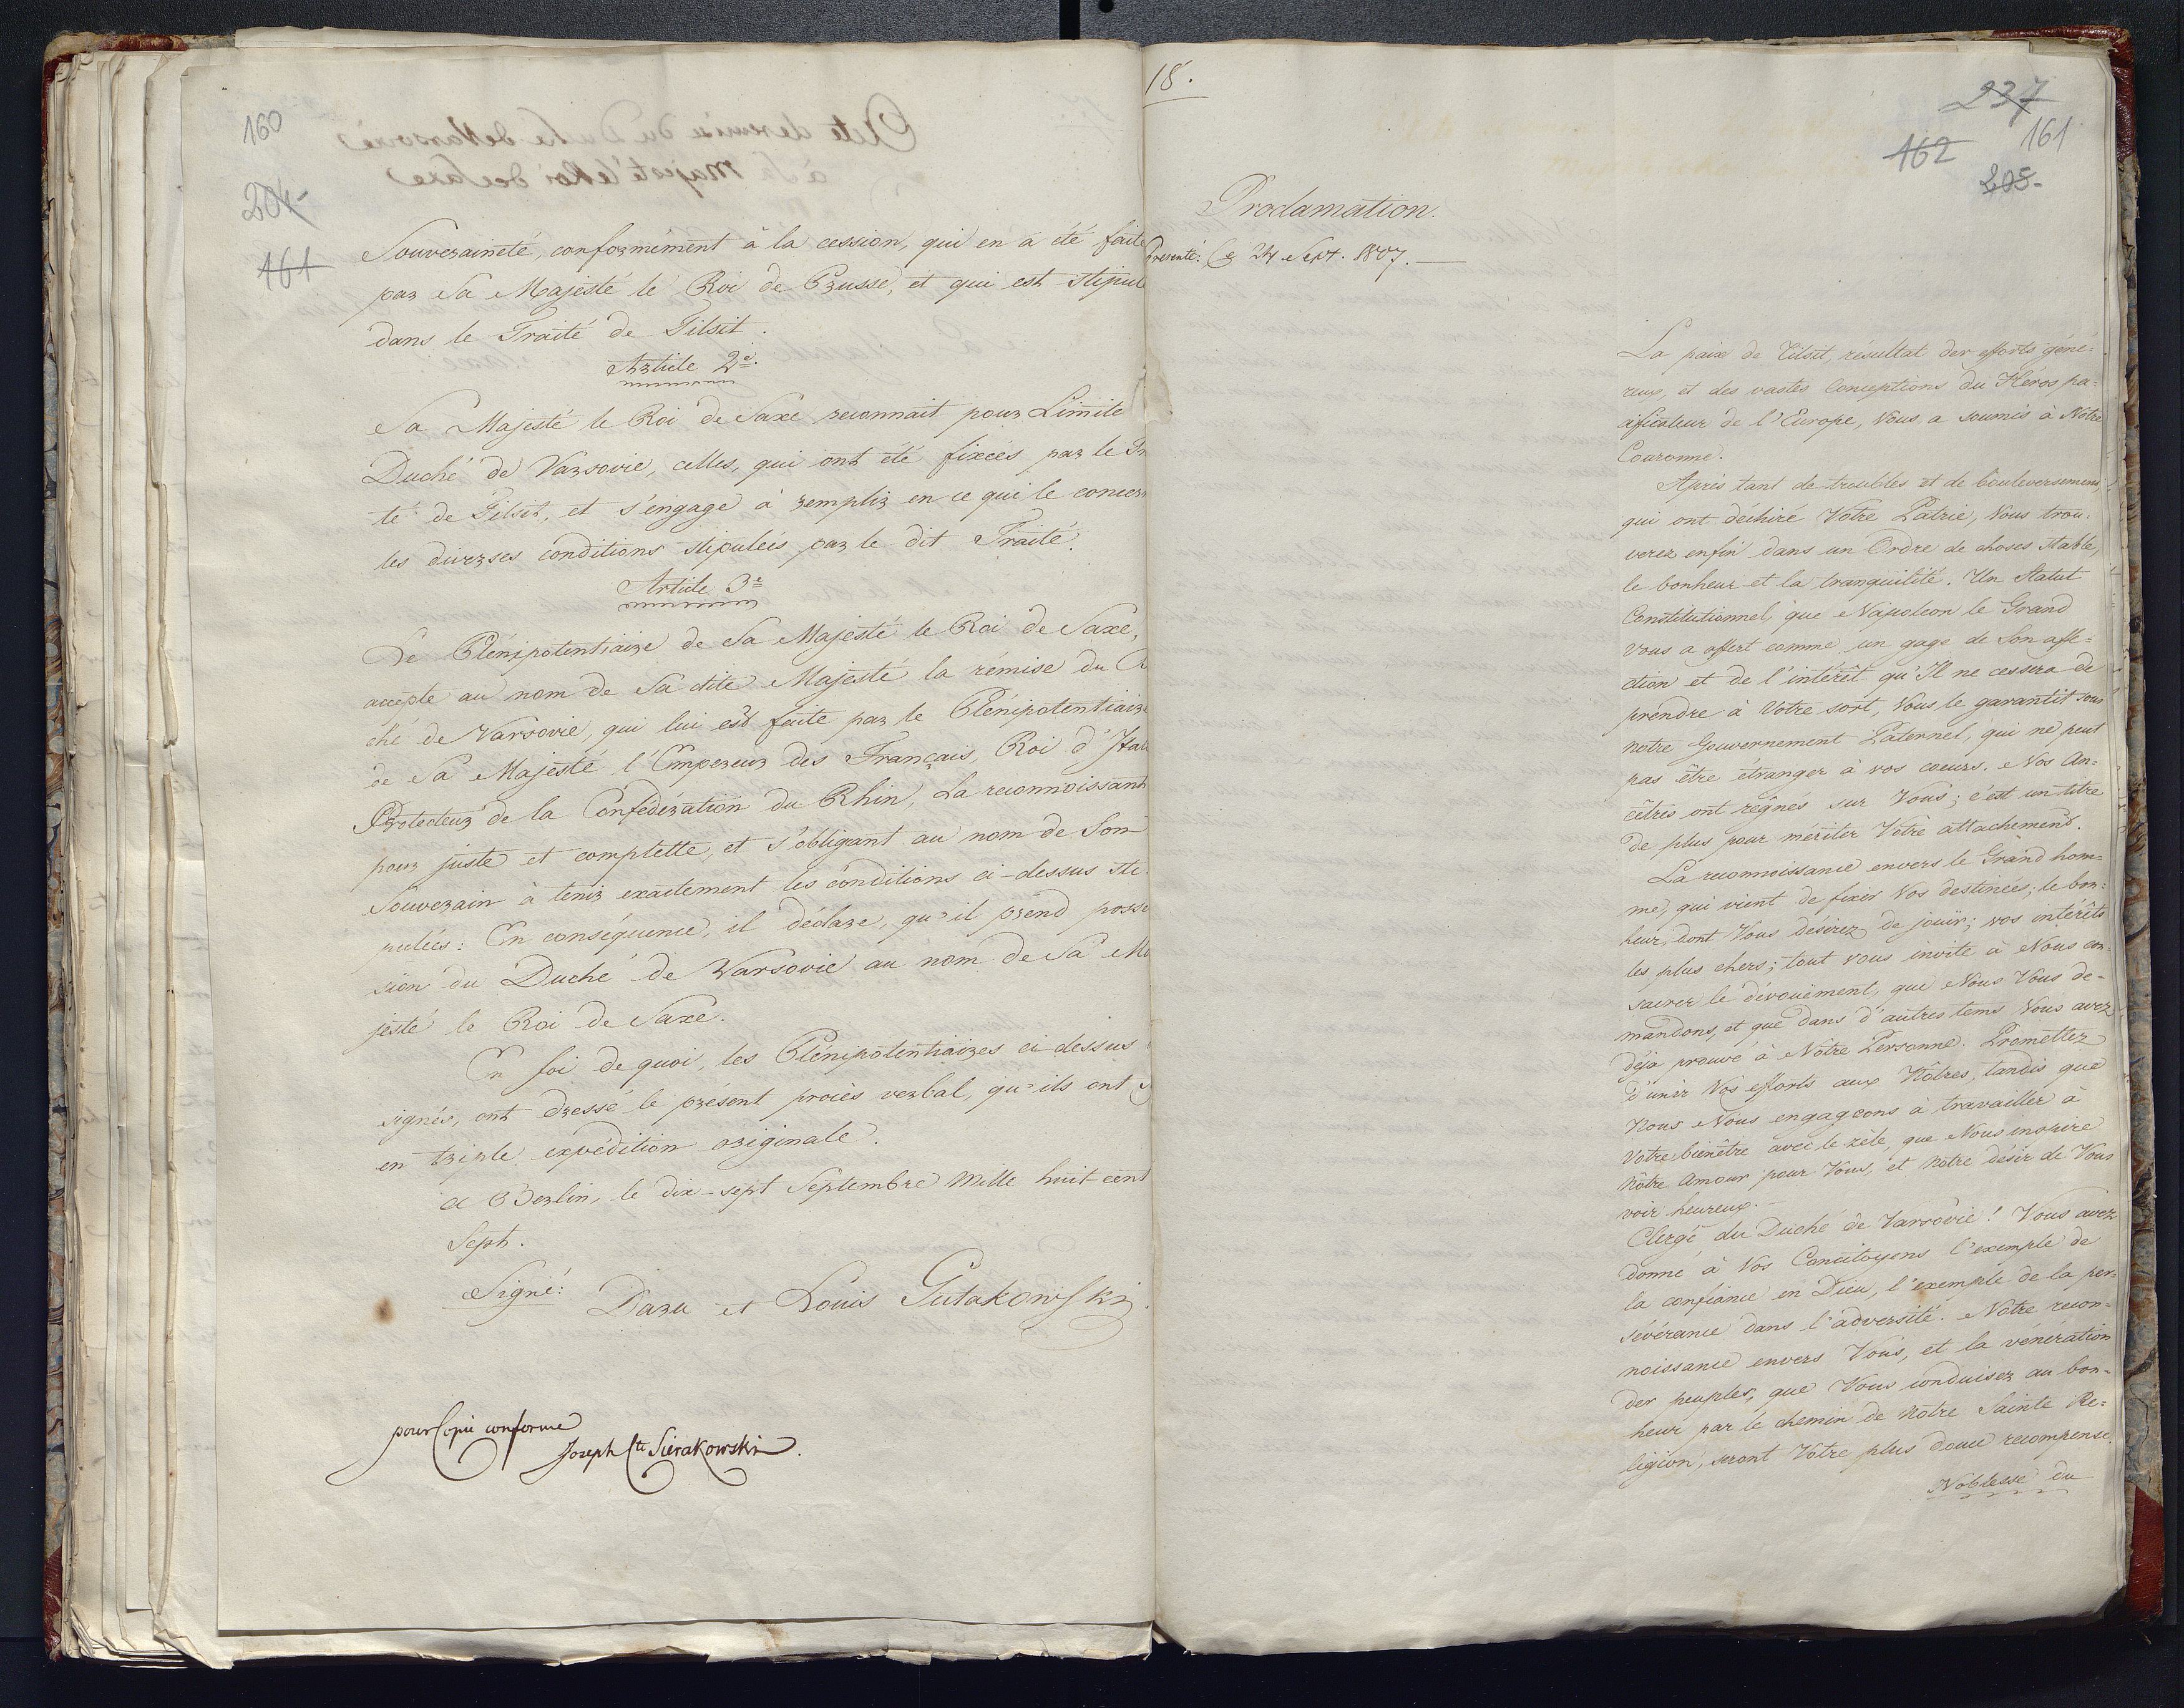 160
204
161
Souveraineté, conformément à la cession, qui en a été faite
par Sa Majesté le Roi de Prusse, et qui est stipul
dans le Traité de Tilsit.
Article 2e.
Sa Majesté le Roi de Saxe reconnait pour Limite
Duché de Varsovie, celles, qui ont été fixées par le Tr
té de Tilsit, et s'engage à remplir en ce qui le concer
les diverses conditions stipulées par le dit Traité.
Article 3e
Le Plénipotentiaire de Sa Majesté le Roi de Saxe,
accepte au nom de Sa dite Majesté la rémise du
ché de Varsovie, qui lui est faite par le Plénipotentiaire
de Sa Majesté l'Empereur des Français, Roi d'Ital
Protecteur de la Confédération du Rhin, La reconnoissant
pour juste et complette, et s'obligant au nom de Son
Souverain à tenir exactement les conditions ci-dessus sti
pulées: En conséquence, il déclare, qu'il prend posse
sion du Duché de Warsovie au nom de Sa Ma
jesté le Roi de Saxe.
En foi de quoi, les Plénipotentiaires ci-dessus
signés, ont dressé le présent procès verbal, qu'ils ont
en triple expédition originale.
à Berlin, le dix-sept Septembre Mille huit cent
Sept.
Signé: Daru et Louis Gutakowski.
pour Copie conforme
Joseph Cte Sierakowski.
18.
237
162 161
205
Proclamation.
Presenté: Ce 24 Sept. 1807.
La paix de Tilsit, résultat des efforts géné-
reux, et des vastes Conceptions du Héros pa-
cificateur de l'Europe, Vous a soumis à Nôtre
Couronne.
Après tant de troubles et de bouleversemens,
qui ont déchiré Votre Patrie, Vous trou-
verez enfin dans un Ordre de choses stable,
le bonheur et la tranquilité. Un Statut
Constitutionnel, que Napoléon le Grand
vous a offert comme un gage de Son affe-
ction et de l'intérêt qu'Il ne cessera de
prendre à Votre sort, Vous le garantit sous
notre Gouvernement Paternel, qui ne peut
pas être étranger à vos coeurs. Nos An-
cêtres ont regnés sur Vous; c'est un titre
de plus pour mériter Vôtre attachement.
La reconnoissance envers le Grand hom-
me, qui vient de fixer Vos destinées; le bon-
heur, dont Vous désirez de jouir; vos intérêts
les plus chers; tout vous invite à Nous con-
sacrer le dévouement, que Nous Vous de-
mandons, et que dans d'autres tems Vous avez
déja prouvé à Nôtre Personne. Promettez
d'unir Vos efforts aux Nôtres, tandis que
Nous Nous engageons à travailler à
Votre bienêtre avec le zèle, que Nous inspire
Nôtre Amour pour Vous, et Nôtre desir de Vous
voir heureux.
Clergé du Duché de Varsovie! Vous avez
donné à Vos Concitoyens l'exemple de
la confiance en Dieu, l'exemple de la per-
sévérance dans l'adversité. Notre recon-
noissance envers Vous, et la vénération
des peuples, que Vous conduisez au bon-
heur par le chemin de Nôtre Sainte Re-
ligion, seront Vôtre plus douce recompense.
Noblesse du